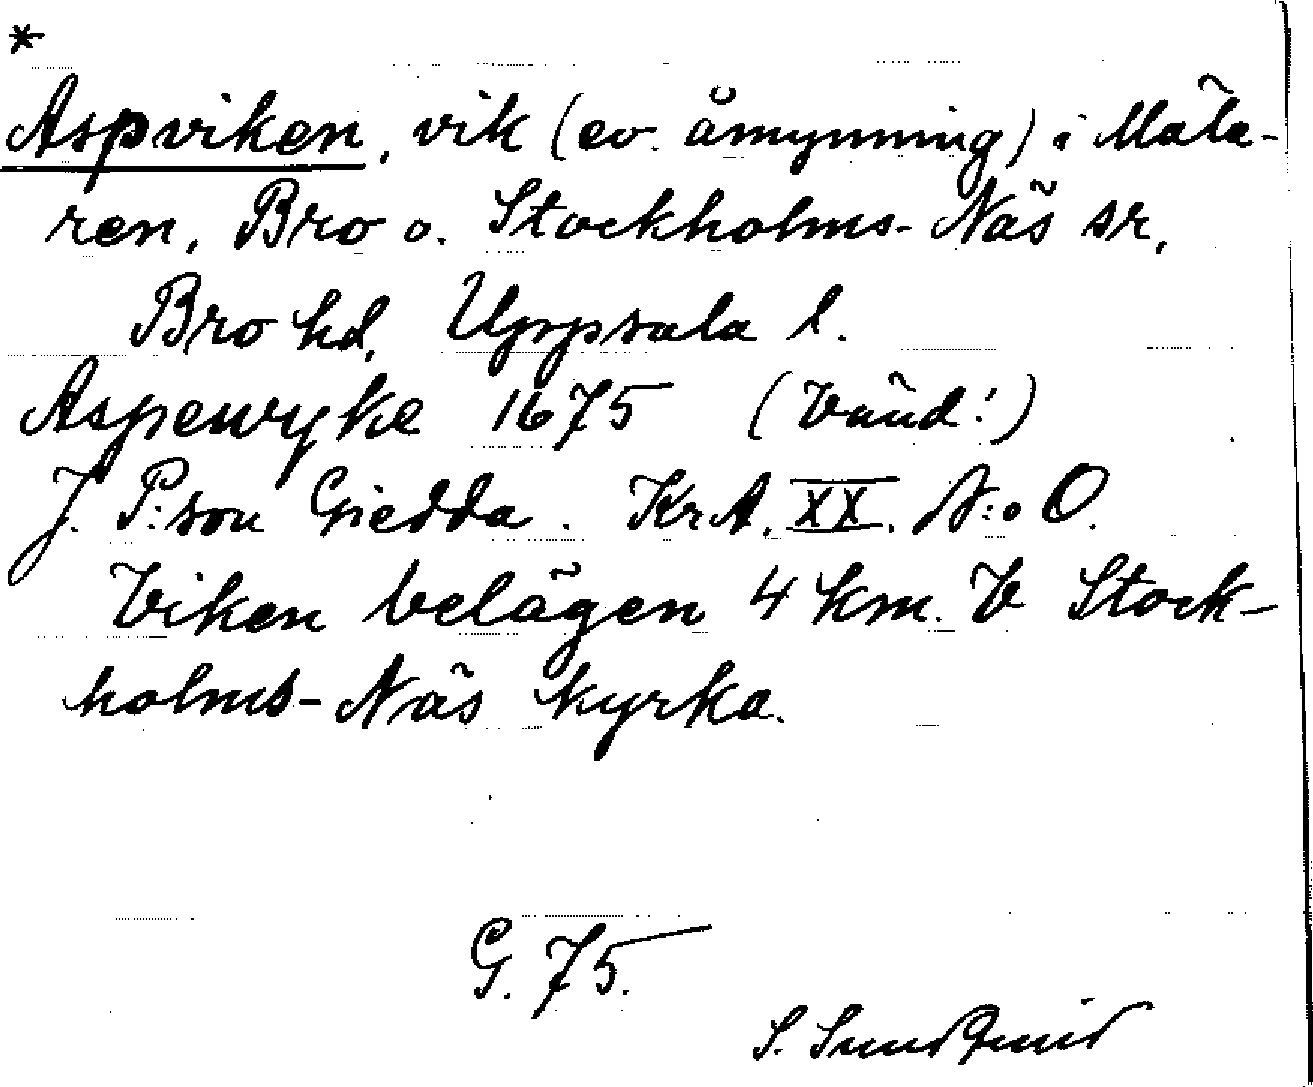 *
Aspviken, vik (ev. åmynning) i Mäla-
ren, Bro o. Stockholms-Näs sr,
Bro hd, Uppsala l.
Aspewyke 1675 (Vänd!)
J. P:son Giedda. KrA. XX. N:o O.
Viken belägen 4 km. V Stock-
holms-Näs kyrka.
G. 75.
S. Sundquist